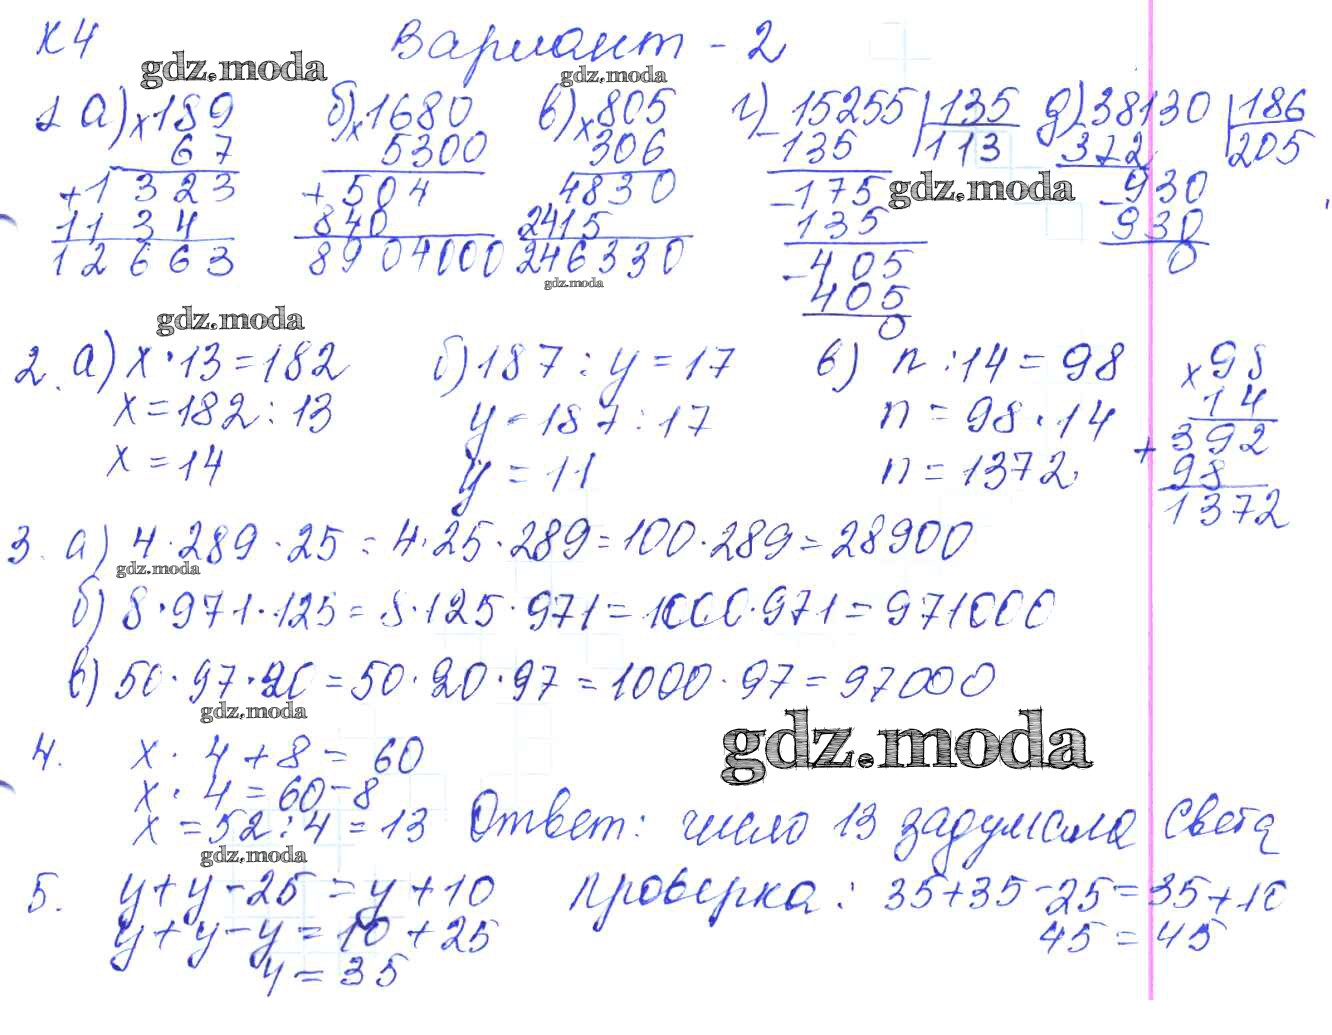 К 4 Вариант - 2
1 а) × 189 б) × 1680 в) × 805 г) - 15255 | 135 д) - 38130 | 186
67 5300 306 135 113 372 205
+ 1323 + 504 4830 - 175 - 930
1134 840 2415 135 930
12663 8904000 246330 - 405 0
405
0
2. а) x · 13 = 182 б) 187 : y = 17 в) n : 14 = 98 × 98
x = 182 : 13 y = 187 : 17 n = 98 · 14 14
x = 14 y = 11 n = 1372 + 392
98
1372
3. а) 4 · 289 · 25 = 4 · 25 · 289 = 100 · 289 = 28900
б) 8 · 971 · 125 = 8 · 125 · 971 = 1000 · 971 = 971000
в) 50 · 97 · 20 = 50 · 20 · 97 = 1000 · 97 = 97000
4. x · 4 + 8 = 60
x · 4 = 60 - 8
x = 52 : 4 = 13 Ответ: число 13 задумала Света
5. y + y - 25 = y + 10 проверка: 35 + 35 - 25 = 35 + 10
y + y - y = 10 + 25 45 = 45
y = 35
gdz.moda
gdz.moda
gdz.moda
gdz.moda
gdz.moda
gdz.moda
gdz.moda
gdz.moda
gdz.moda